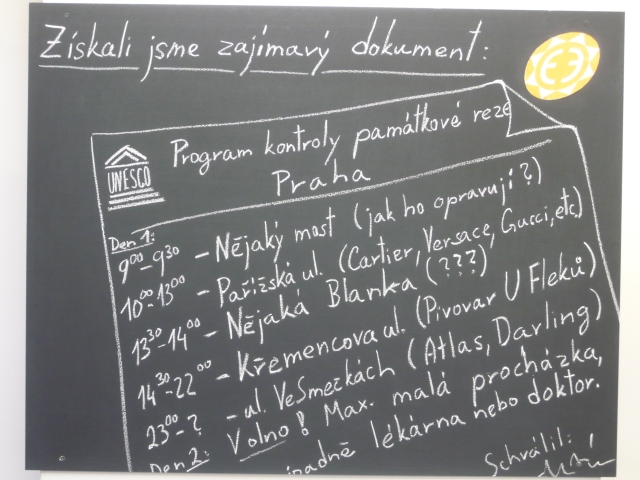 Získali jsme zajímavý dokument:
UNESCO
Program kontroly památkové reze
Praha
Den 1:
9⁰⁰-9³⁰ - Nějaký most (jak ho opravují?)
10⁰⁰-13⁰⁰ - Pařížská ul. (Cartier, Versace, Gucci, etc)
13³⁰-14⁰⁰ - Nějaká Blanka (???)
14³⁰-22⁰⁰ - Křemencova ul. (Pivovar U Fleků)
23⁰⁰-? - ul. Ve Smeckách (Atlas, Darling)
Den 2: Volno! Max. malá procházka,
ípadně lékárna nebo doktor.
Schválil: